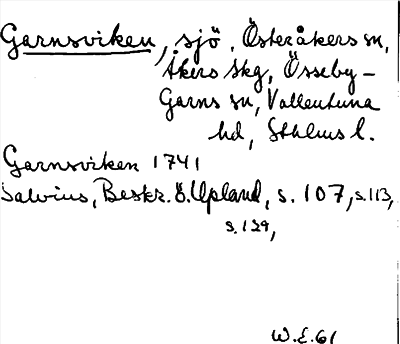 Garnsviken, sjö, Österåkers sn,
Åkers skg, Össeby-
Garns sn, Vallentuna
hd, Sthlms l.
Garnsviken 1741
Salvius, Beskr. ö. Upland, s. 107, s. 113,
s. 129,
W.E. 61